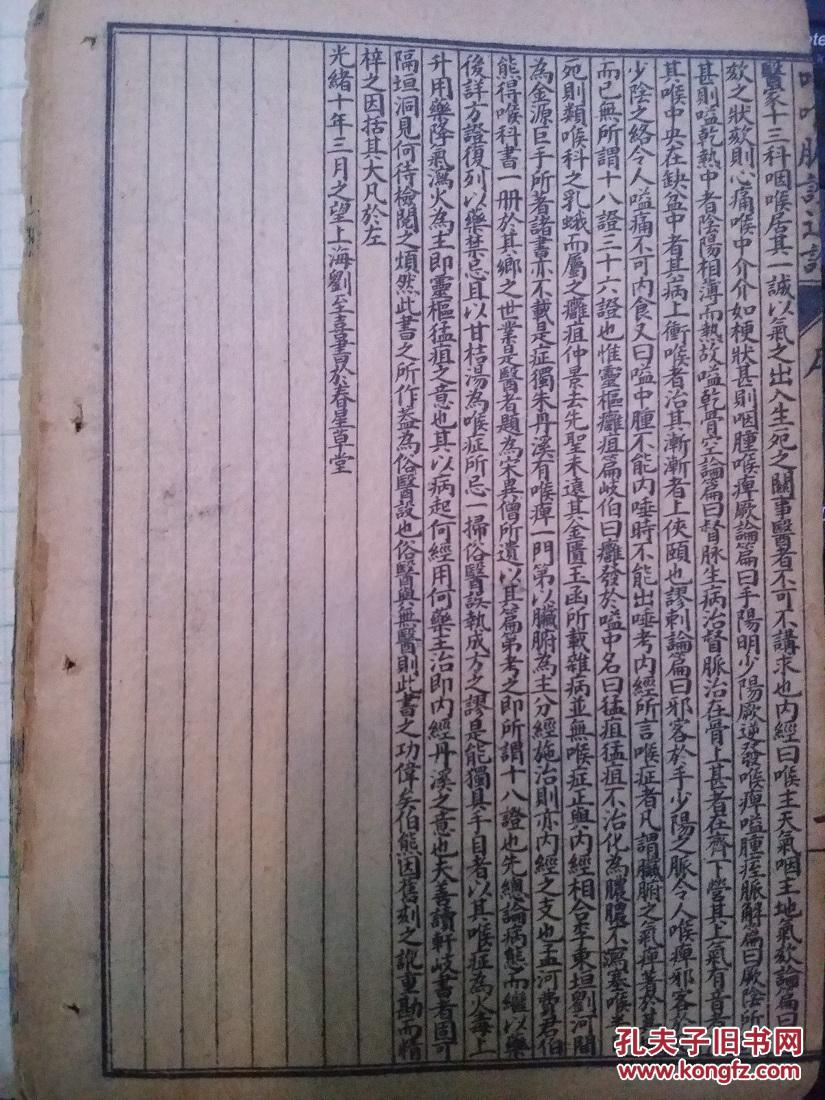 咽喉脈證通論
序
醫家十三科咽喉居其一誠以氣之出入生死之關事醫者不可不講求也內經曰喉主天氣咽主地氣欬論篇曰
欬之狀欬則心痛喉中介介如梗狀甚則咽腫喉痺厥論篇曰手陽明少陽厥逆發喉痺嗌腫痓脈解篇曰厥陰所
甚則嗌乾熱中者陰陽相薄而熱故嗌乾骨空論篇曰督脉生病治督脈治在骨上甚者在齊下營其上氣有音者
其喉中央在缺盆中者其病上衝喉者治其漸漸者上俠頤也謬刺論篇曰邪客於手少陽之脈令人喉痺邪客於
少陰之絡令人嗌痛不可內食又曰嗌中腫不能內唾時不能出唾考內經所言喉症者凡謂臟腑之氣痺著於其
而已無所謂十八證三十六證也惟靈樞癰疽篇岐伯曰癰發於嗌中名曰猛疽猛疽不治化為膿膿不瀉塞喉半
死則類喉科之乳蛾而屬之癰疽仲景去先聖未遠其金匱玉函所載雜病並無喉症正與內經相合李東垣劉河間
為金源巨手所著諸書亦不載是症獨朱丹溪有喉痺一門第以臟腑為主分經施治則亦內經之支也孟河費君伯
熊得喉科書一册於其鄉之世業是醫者題為宋異僧所遺以其篇第考之即所謂十八證也先總論病態而繼以藥
後詳方證復列以藥禁忌且以甘桔湯為喉症所忌一掃俗醫誤執成方之謬是能獨具手目者以其喉症為火毒上
升用藥降氣瀉火為主即靈樞猛疽之意也其以病起何經用何藥主治即內經丹溪之意也夫善讀軒岐書者固可
隔垣洞見何待檢閱之煩然此書之所作葢為俗醫設也俗醫與無醫則此書之功偉矣伯熊因舊刻之訛重勘而精
梓之因括其大凡於左
光緒十年三月之望上海劉至喜書於春星草堂
孔夫子旧书网
www.kongfz.com